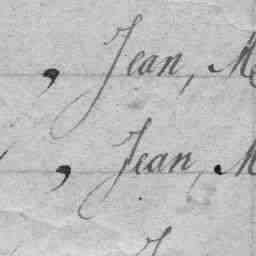 , Jean, M
, Jean, M